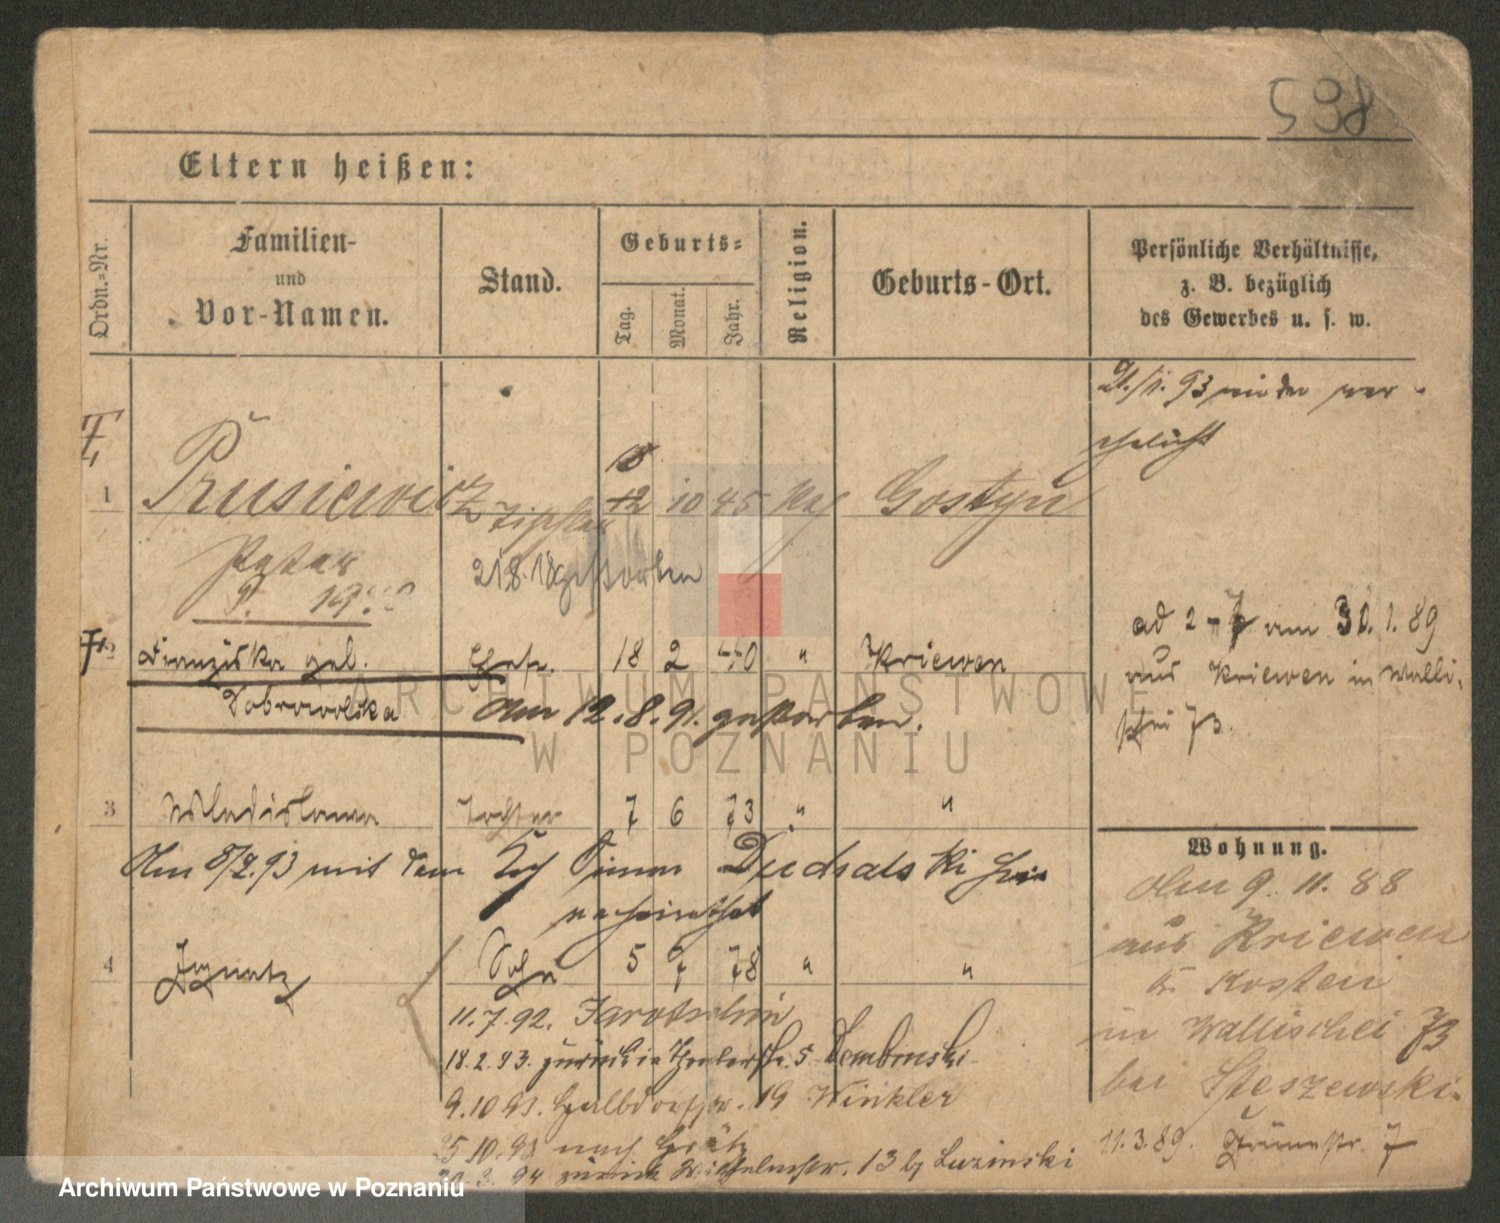 538
Eltern heißen:
Ordn.-Nr.
Familien-
und
Vor-Namen.
Stand.
Geburts-
Tag.
Monat.
Jahr.
Religion.
Geburts-Ort.
Persönliche Verhältnisse,
z. B. bezüglich
des Gewerbes u. s. w.
21./11. 93 wieder ver-
ehelicht
1 Prusiewicz 12 10 45 Kath Gostyn
18
Peter
gestorben
2 Franziska geb. Ehefr. 18 2 40 " Kriewen
Dobrowolska Am 12.8.91. gestorben.
ad 2-7 am 31.1.89
aus Kriewen in Walli-
schei 73.
3 Wladislawa Tochter 7 6 73 " "
Am 8/2.93 mit dem
verheirathet
4 Ignatz Sohn 5 7 78 " "
11.7.92. Jarotschin
18.2.93. zurück 5 Dembinski
9.10.93. 19 Winkler
25.10.93 nach Grätz
3. 94 zurück Wilhelmstr. 13 b/ Luzinski
Wohnung.
Am 9. 11. 88
aus Kriewen
K. Kosten
in Wallischei 73
bei Steszewski.
11.3.89. 7
ARCHIWUM PAŃSTWOWE
W POZNANIU
Archiwum Państwowe w Poznaniu